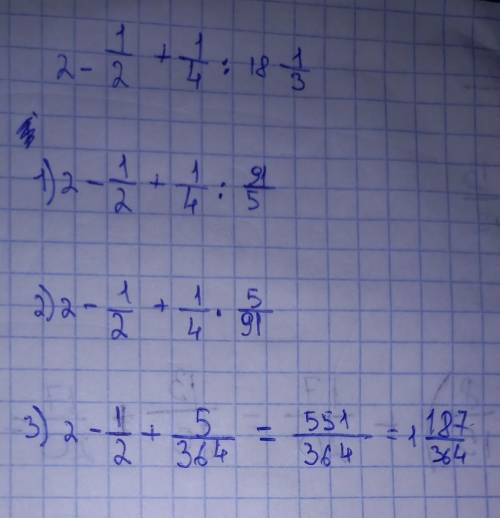 2 - 1/2 + 1/4 : 18 1/3
1) 2 - 1/2 + 1/4 : 91/5
2) 2 - 1/2 + 1/4 · 5/91
3) 2 - 1/2 + 5/364 = 551/364 = 1 187/364